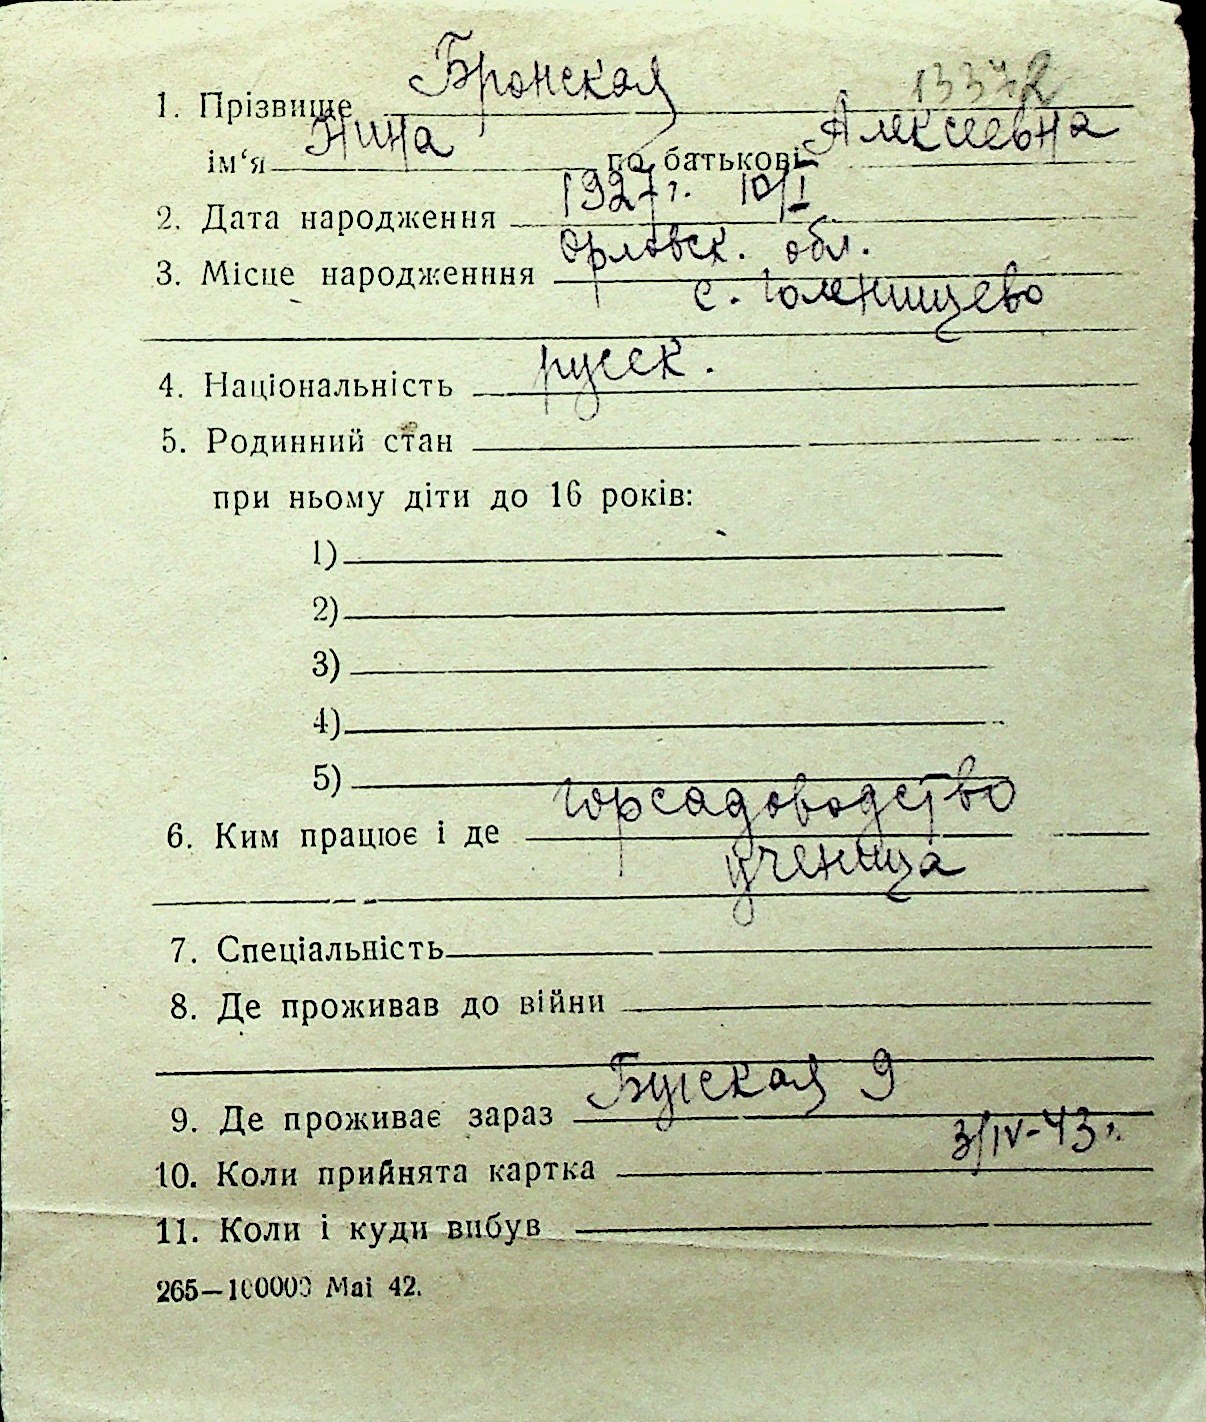 1. Прізвище Бронская 13372
ім‘я Нина по батькові Алексеевна
2. Дата народження 1927 г. 10/I
3. Місце народженння Орловск. обл.
с. Голенищево
4. Національність русск.
5. Родинний стан
при ньому діти до 16 років:
1)
2)
3)
4)
5)
6. Ким працює і де горсадоводство
ученица
7. Спеціальність
8. Де проживав до війни
9. Де проживає зараз 9
10. Коли прийнята картка 3/IV-43 г.
11. Коли і куди вибув
265—100000 Маі 42.